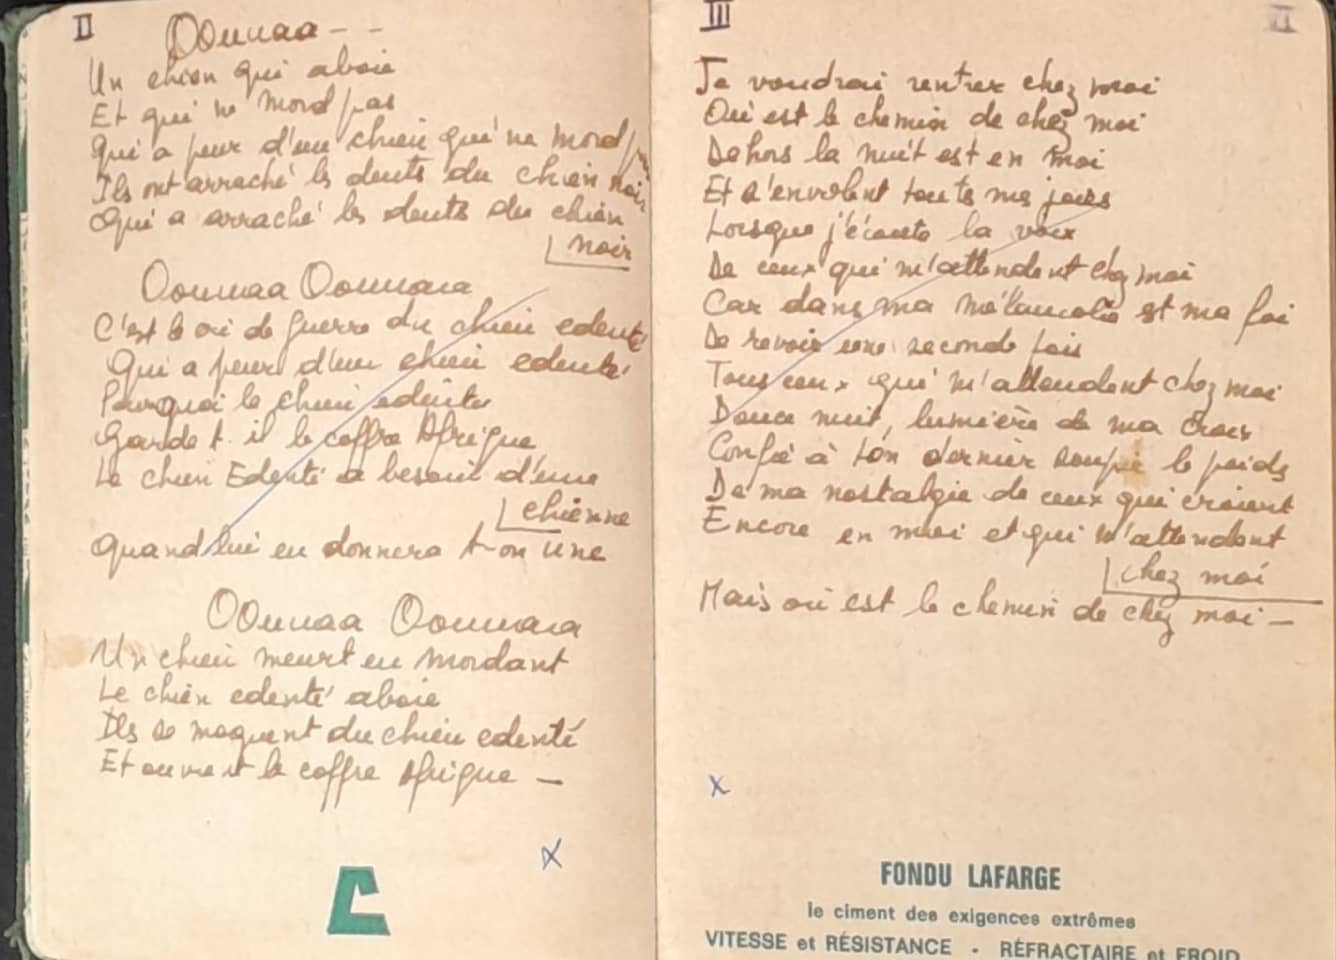 II
OOuuaa - -
Un chien qui aboie
Et qui ne mord pas
Qui a peur d'un chien qui ne mord pas
Ils ont arraché les dents du chien noir
Qui a arraché les dents du chien
noir
Oouuaa Oouuaa
C'est le cri de guerre du chien edenté
Qui a peur d'un chien edenté
Pourquoi le chien edenté
Garde t-il le coffre Afrique
Le chien Edenté a besoin d'une
chienne
Quand lui en donnera t-on une
OOuuaa Oouuaa
Un chien meurt en mordant
Le chien edenté aboie
Ils se moquent du chien edenté
Et ouvrent le coffre Afrique —
x
III
Je voudrai rentrer chez moi
Où est le chemin de chez moi
Dehors la nuit est en moi
Et s'envolent toutes mes joies
Lorsque j'écoute la voix
De ceux qui m'attendent chez moi
Car dans ma mélancolie est ma foi
De revoir une seconde fois
Tous ceux qui m'attendent chez moi
Douce nuit, lumière de ma Croix
Confie à ton dernier soupir le poids
De ma nostalgie de ceux qui croient
Encore en moi et qui m'attendent
chez moi
Mais où est le chemin de chez moi —
x
FONDU LAFARGE
le ciment des exigences extrêmes
VITESSE et RÉSISTANCE - RÉFRACTAIRE et FROID